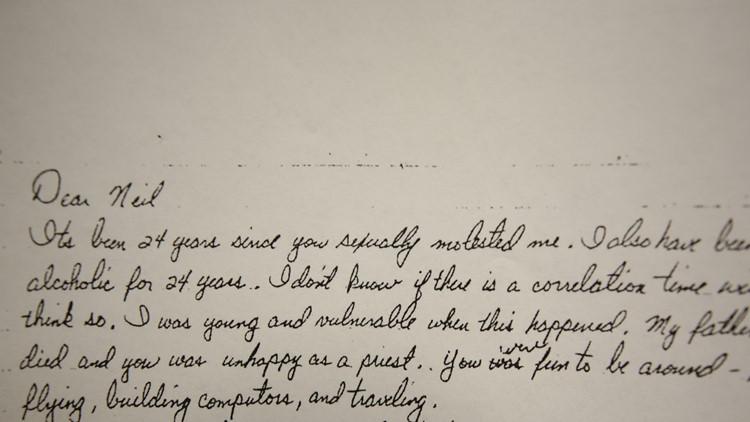 Dear Neil
Its been 24 years since you sexually molested me. I also have been
alcoholic for 24 years.. I don't know if there is a correlation time
think so. I was young and vulnerable when this happened. My father
died and you was unhappy as a priest.. you were fun to be around -
flying, building computors, and traveling.